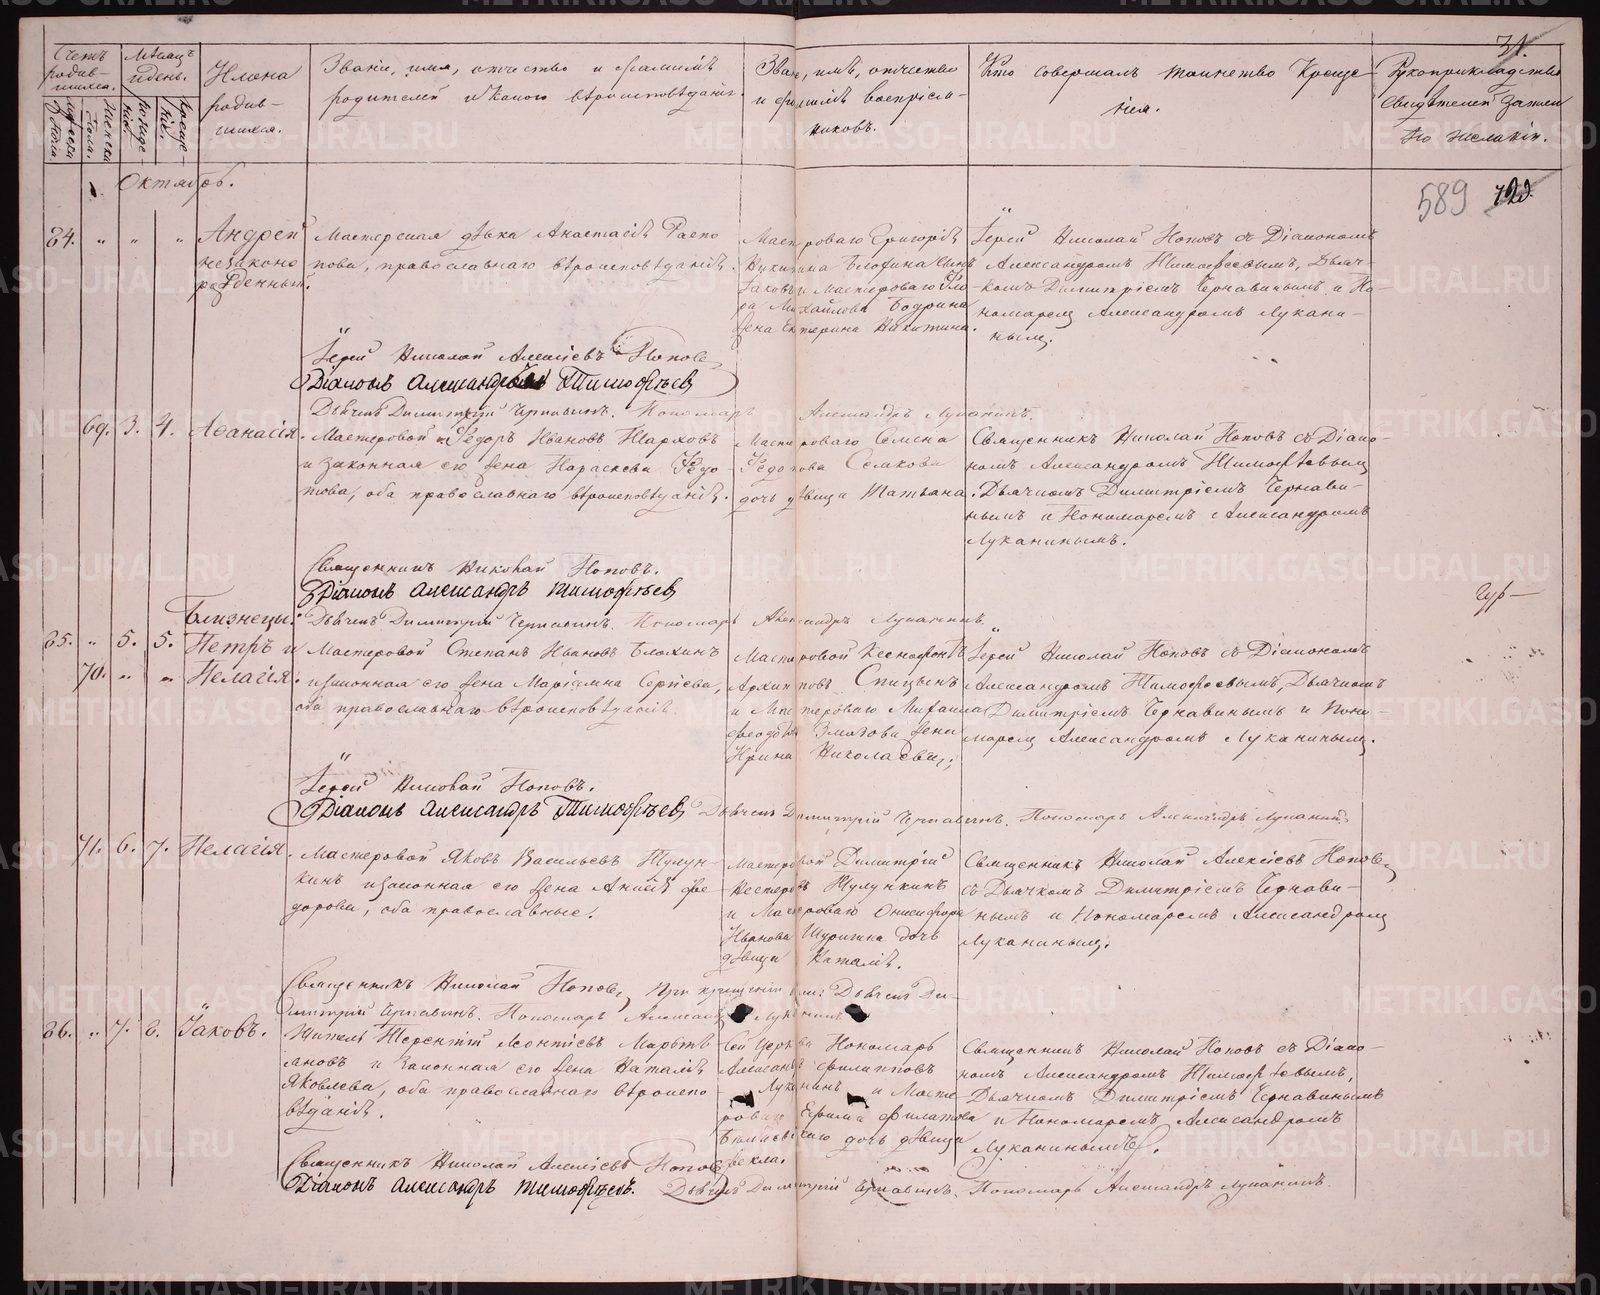 Счетъ родив-шихся.
Мѣсяцъ и день.
Имена родив-шихся.
Званіе, имя, отчество и фамилія родителей и какого вѣроисповѣданія.
Званіе, имя, отчество и фамилія воспріем-никовъ.
Кто совершалъ таинство Креще-нія.
Рукоприкладство свидѣтелей записи по желанію.
31.
589
Октябрь.
84. " " " Андрей незаконно рожденный.
Мастерская дѣвка Анастасія
православнаго вѣроисповѣданія.
Мастероваго Григорія
Никитина
и Мастероваго
Михайлова Бодрина
жена Екатерина Никитина.
Іерей Николай Поповъ съ Діакономъ
Александромъ Тимофеевымъ, Дьяч-
комъ Димитріемъ Чернавинымъ и По-
номаремъ Александромъ Лукани-
нымъ.
Іерей Николай Алексіевъ Поповъ
Діаконъ Александръ Тимофѣевъ
Дьячекъ Димитрій Чернавинъ. Пономарь Александръ Луканинъ.
69. 3. 4. Аѳанасія.
Мастеровой Ѳедоръ Ивановъ Шарховъ
и законная его жена Параскева Ѳедо-
това, оба православнаго вѣроисповѣданія.
Мастероваго Семена
Ѳедотова
дочь дѣвица Татьяна.
Священникъ Николай Поповъ съ Діако-
номъ Александромъ Тимофѣевымъ
Дьячкомъ Димитріемъ Чернави-
нымъ и Пономаремъ Александромъ
Луканинымъ.
Священникъ Николай Поповъ.
Діаконъ Александръ Тимофѣевъ
Дьячекъ Димитрій Чернавинъ. Пономарь Александръ Луканинъ.
Близнецы:
85. " 5. 5. Петръ и
70. " " Пелагія.
Мастеровой Степанъ Ивановъ Блохинъ
и законная его жена Маріамна Сергіева,
оба православнаго вѣроисповѣданія.
Мастеровой Ксенофонтъ
Архиповъ Спицынъ
и Мастероваго Михаила
жена
Ирина Николаева;
Іерей Николай Поповъ съ Діакономъ
Александромъ Тимофѣевымъ, Дьячкомъ
Димитріемъ Чернавинымъ и Поно-
маремъ Александромъ Луканинымъ.
Іерей Николай Поповъ.
Діаконъ Александръ Тимофѣевъ Дьячекъ Димитрій Чернавинъ. Пономарь Александръ Луканинъ
71. 6. 7. Пелагія.
Мастеровой Яковъ Васильевъ Тулун-
кинъ и законная его жена Анисія Ѳе-
дорова, оба православные.
Мастеровой Димитрій
Нестеровъ Тулункинъ
и Мастероваго Онисифора
Иванова дочь
дѣвица Наталія.
Священникъ Николай Алексіевъ Поповъ
съ Дьячкомъ Димитріемъ Чернави-
нымъ и Пономаремъ Александромъ
Луканинымъ.
Священникъ Николай Поповъ При крещеніи были: Дьячекъ Ди-
митрій Чернавинъ. Пономарь Александръ Луканинъ
86. " 7. 8. Іаковъ.
Житель Терентій Леонтіевъ Мартьи-
ановъ и законная его жена Наталія
Яковлева, оба православнаго вѣроиспо-
вѣданія.
сей церкви Пономарь
Александръ Филипповъ
Луканинъ и Масте-
роваго Ефима Филатова
дочь дѣвица
Ѳекла.
Священникъ Николай Поповъ съ Діако-
номъ Александромъ Тимофѣевымъ,
Дьячкомъ Димитріемъ Чернавинымъ
и Пономаремъ Александромъ
Луканинымъ.
Священникъ Николай Алексіевъ Поповъ
Діаконъ Александръ Тимофѣевъ. Дьячекъ Димитрій Чернавинъ. Пономарь Александръ Луканинъ.
METRIKI.GASO-URAL.RU